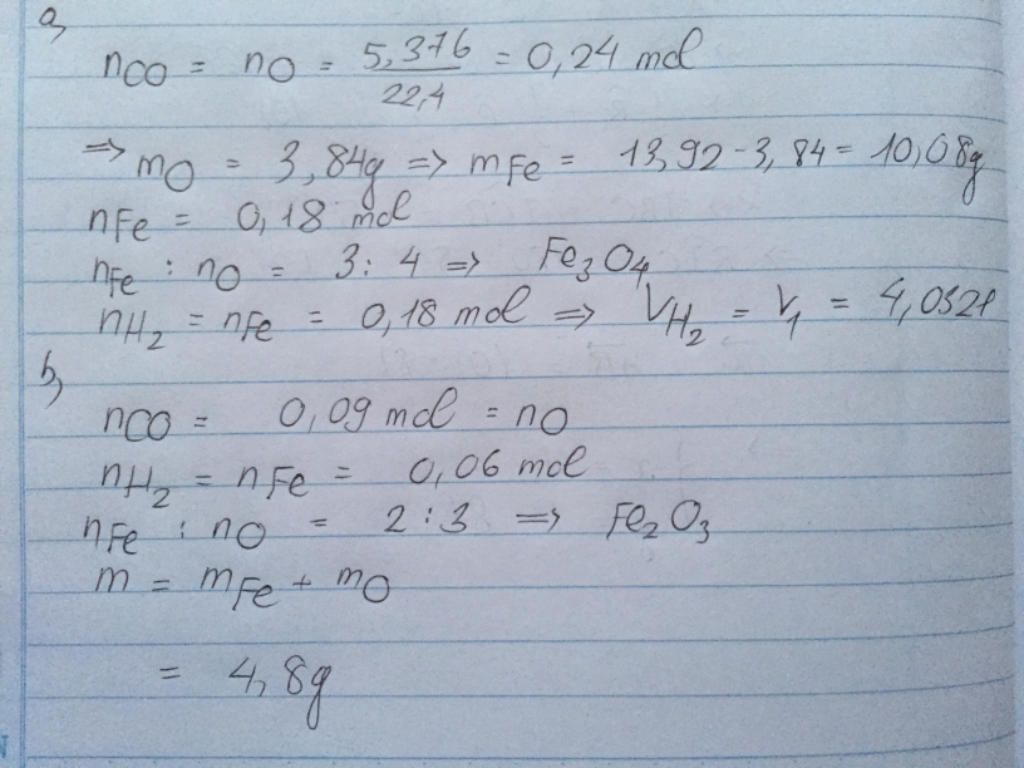 a,
nCO = nO = 5,376/22,4 = 0,24 mol
=> mO = 3,84g => mFe = 13,92 - 3,84 = 10,08g
nFe = 0,18 mol
nFe : nO = 3:4 => Fe3O4
nH2 = nFe = 0,18 mol => VH2 = V1 = 4,032l
b,
nCO = 0,09 mol = nO
nH2 = nFe = 0,06 mol
nFe : nO = 2:3 => Fe2O3
m = mFe + mO
= 4,8g